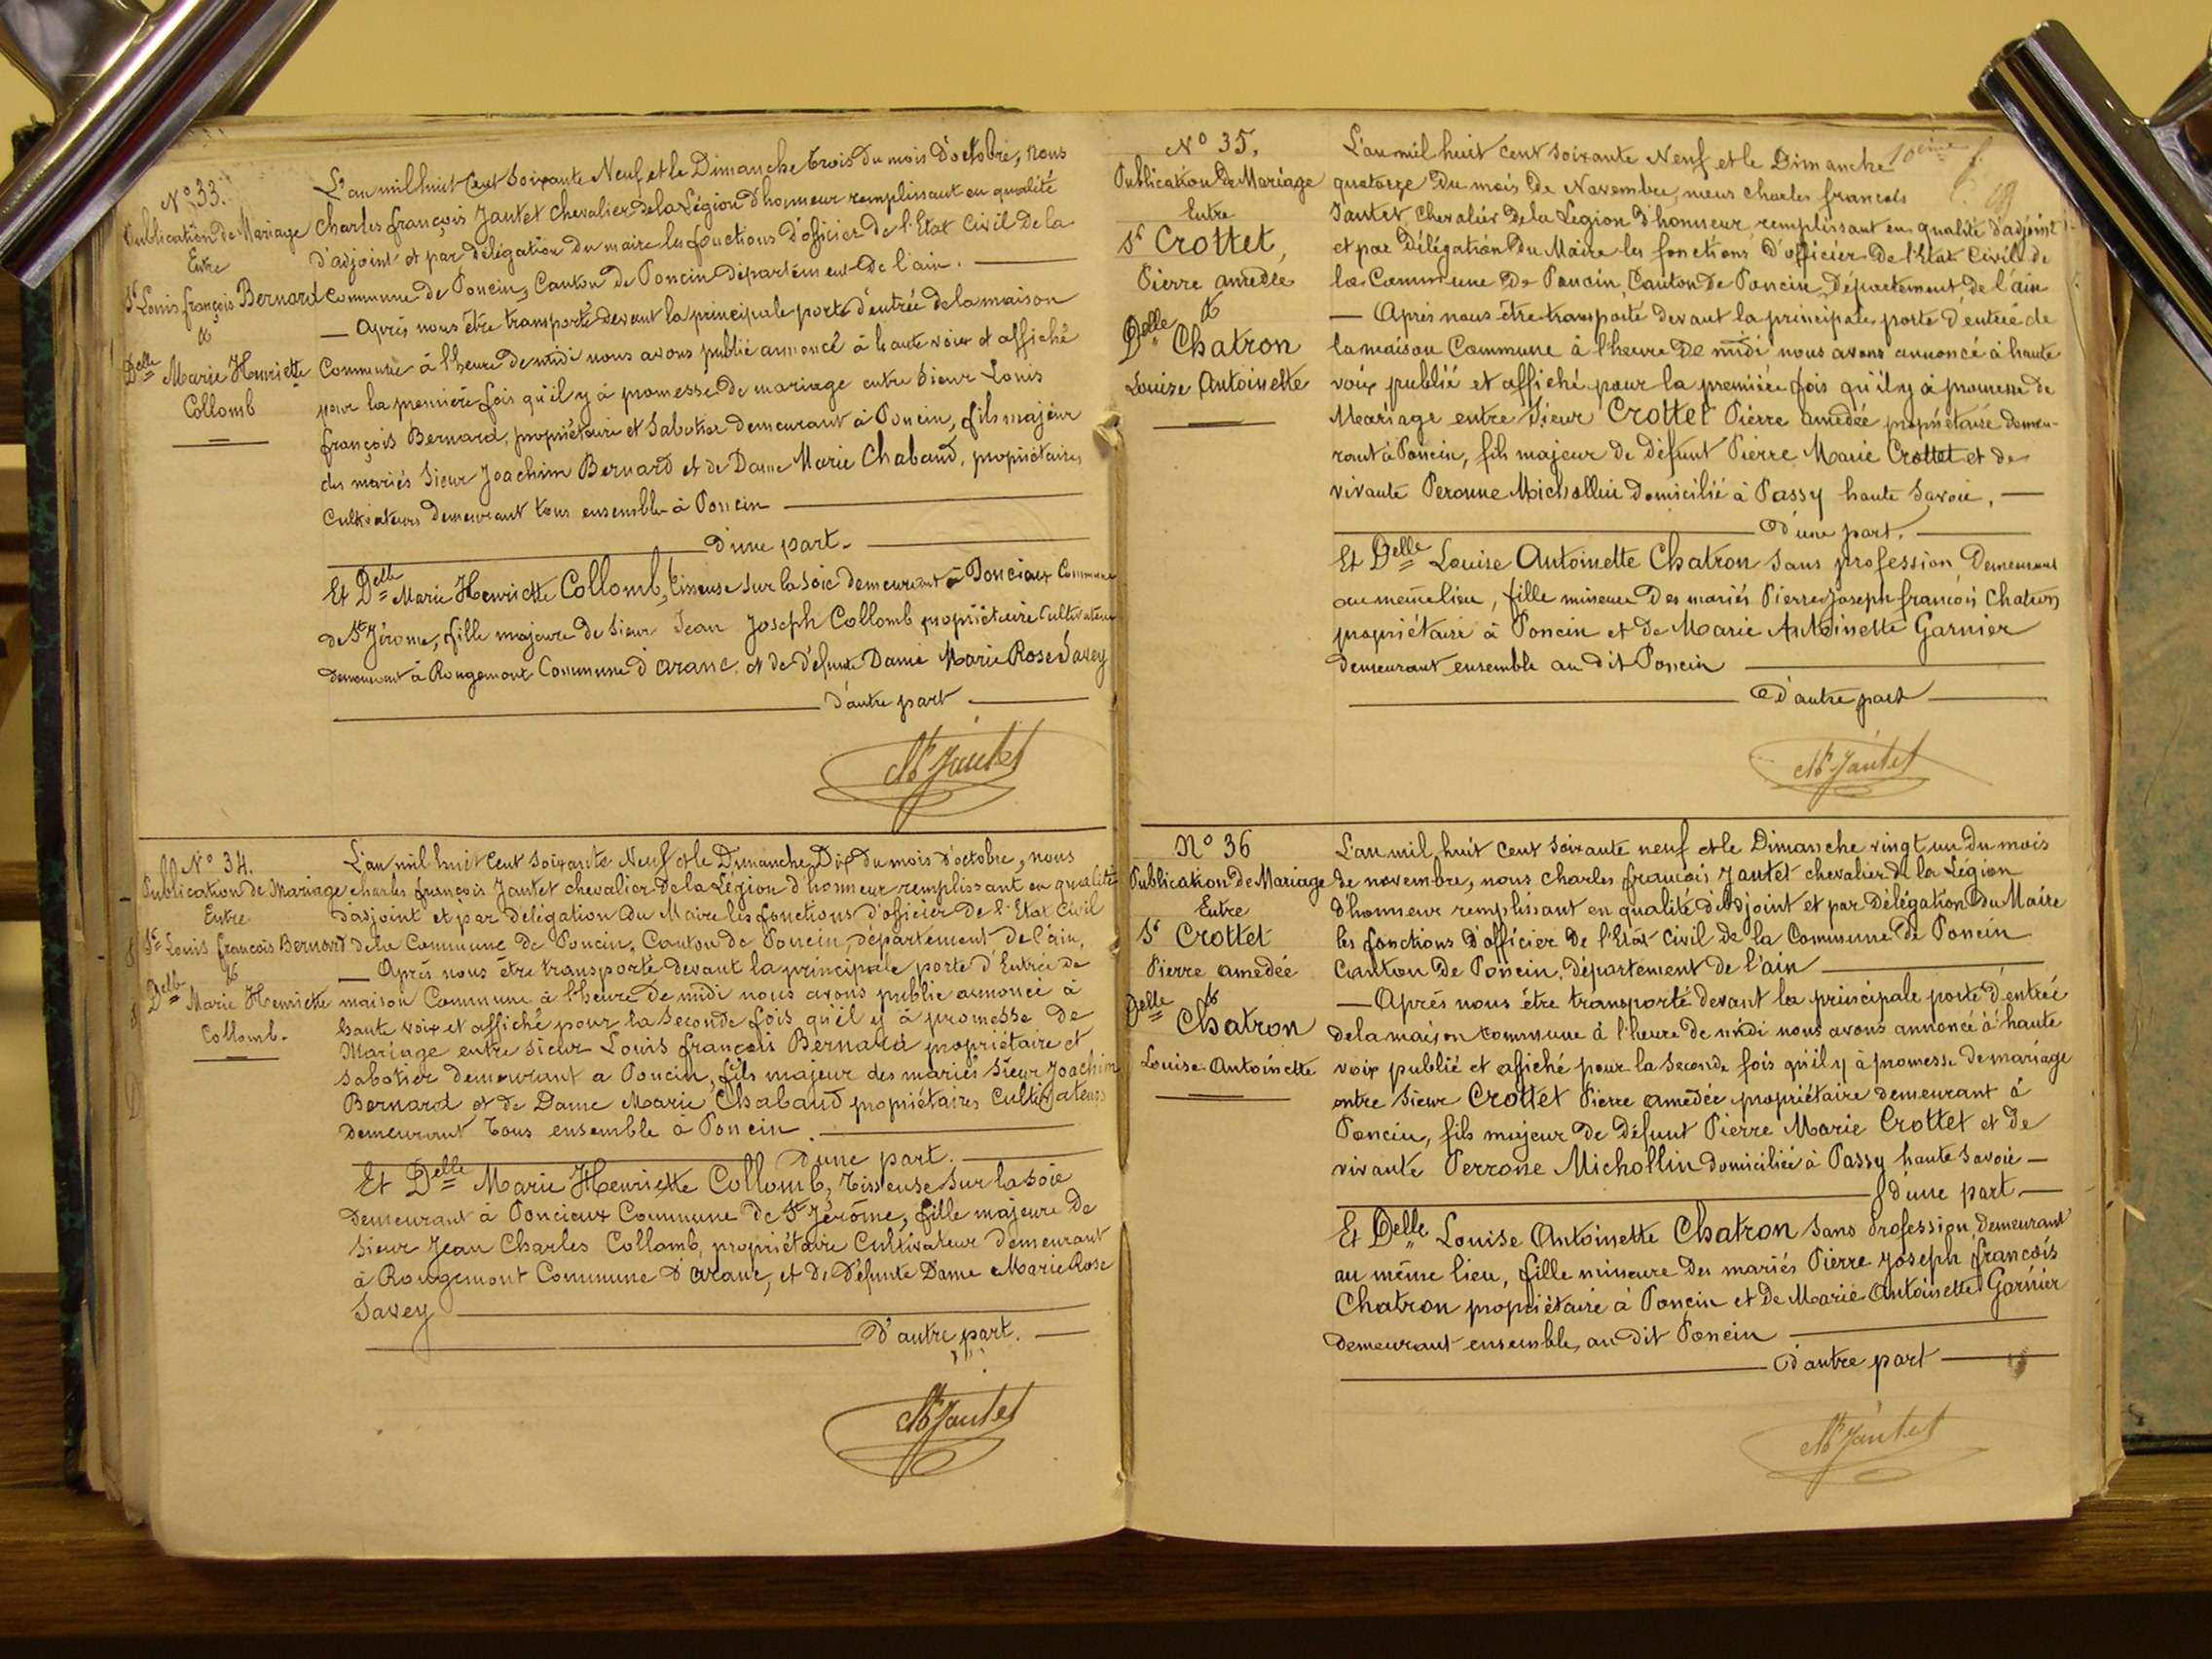 N° 33.
Publication de Mariage
Entre
Sr Louis françois Bernard
&
Delle Marie Henriette
Collomb
L'an mil huit Cent Soixante Neuf et le Dimanche trois du mois d'octobre, nous
Charles françois Jantet Chevalier de la Légion d'honneur remplissant en qualité
d'adjoint et par délégation du maire les fonctions d'officier de l'Etat Civil de la
Commune de Poncin, Canton de Poncin département de l'ain.
— Après nous être transporté devant la principale porte d'entrée de la maison
Commune à l'heure de midi nous avons publié annoncé à haute voix et affiché
pour la première fois qu'il y à promesse de mariage entre Sieur Louis
françois Bernard, propriétaire et Sabotier demeurant à Poncin, fils majeur
des mariés Sieur Joachim Bernard et de Dame Marie Chabaud, propriétaires
Cultivateurs demeurant tous ensemble à Poncin
d'une part.
Et Delle Marie Henriette Collomb, tisseuse sur la soie demeurant à Poncieux Commune
de St Jérome, fille majeure de Sieur Jean Joseph Collomb propriétaire Cultivateur
demeurant à Rougemont Commune d'aranc. et de défunte Dame Marie Rose Savey
d'autre part
Ch Jantet
N° 34.
Publication de Mariage
Entre
Sr Louis françois Bernard
&
Delle Marie Henriette
Collomb.
L'an mil huit cent soixante Neuf et le Dimanche Dix du mois d'octobre, nous
charles françois Jantet chevalier de la Légion d'honneur remplissant en qualité
d'adjoint et par délégation du Maire les fonctions d'officier de l'Etat Civil
de la Commune de Poncin, Canton de Poncin, département de l'ain,
— Après nous être transporté devant la principale porte d'Entrée de
maison Commune à l'heure de midi nous avons publié annoncé à
haute voix et affiché pour la Seconde fois qu'il y à promesse de
Mariage entre sieur Louis françois Bernard propriétaire et
Sabotier demeurant a Poncin, fils majeur des mariés Sieur Joachim
Bernard et de Dame Marie Chabaud propriétaires Cultivateurs
demeurant Tous ensemble à Poncin.
d'une part.
Et Delle Marie Henriette Collomb, Tisseuse sur la soie
demeurant à Poncieux Commune de St Jérôme, fille majeure de
Sieur Jean Charles Collomb, propriétaire Cultivateur demeurant
à Rougemont Commune d'aranc, et de Défunte Dame Marie Rose
Savey
D'autre part.
Ch Jantet
N° 35.
Publication de Mariage
Entre
Sr Crottet,
Pierre amedée
&
Delle Chatron
Louise Antoinette
10eme f.
L'an mil huit cent soixante Neuf et le Dimanche
quatorze du mois de Novembre, nous charles françois
Jantet Chevalier de la Légion d'honneur remplissant en qualité d'adjoint
et par Délégation du Maire les fonctions d'officier de l'Etat Civil de
la Commune de Poncin, Canton de Poncin, Département de l'ain
— Après nous être transporté devant la principale porte d'entrée de
la maison Commune à l'heure de midi nous avons annoncé à haute
voix publié et affiché pour la première fois qu'il y à promesse de
Mariage entre Sieur Crottet Pierre amedée propriétaire demeu-
rant à Poncin, fils majeur de défunt Pierre Marie Crottet et de
vivante Peronne Michollin domicilié à Passy haute Savoie.
d'une part.
Et Delle Louise Antoinette Chatron sans profession, demeurant
au même lieu, fille mineure des mariés Pierre Joseph françois Chatron
propriétaire à Poncin et de Marie Antoinette Garnier
demeurant ensemble au dit Poncin
d'autre part
Ch Jantet
N° 36
Publication de Mariage
Entre
Sr Crottet
Pierre amedée
&
Delle Chatron
Louise Antoinette
L'an mil huit cent soixante neuf et le Dimanche vingt un du mois
de novembre, nous charles françois Jantet chevalier de la Légion
d'honneur remplissant en qualité d'adjoint et par Délégation du Maire
les fonctions d'officier de l'Etat civil de la Commune de Poncin
Canton de Poncin, département de l'ain
— Après nous être transporté devant la principale porte d'entrée
de la maison commune à l'heure de midi nous avons annoncé à haute
voix publié et affiché pour la Seconde fois qu'il y à promesse de mariage
entre Sieur Crottet Pierre amédée propriétaire demeurant à
Poncin, fils majeur de défunt Pierre Marie Crottet et de
vivante Perrone Michollin domiciliée à Passy haute Savoie —
d'une part
Et Delle Louise Antoinette Chatron sans profession, demeurant
au même lieu, fille mineure des mariés Pierre Joseph françois
Chatron propriétaire à Poncin et de Marie Antoinette Garnier
demeurant ensemble, au dit Poncin
d'autre part
Ch Jantet